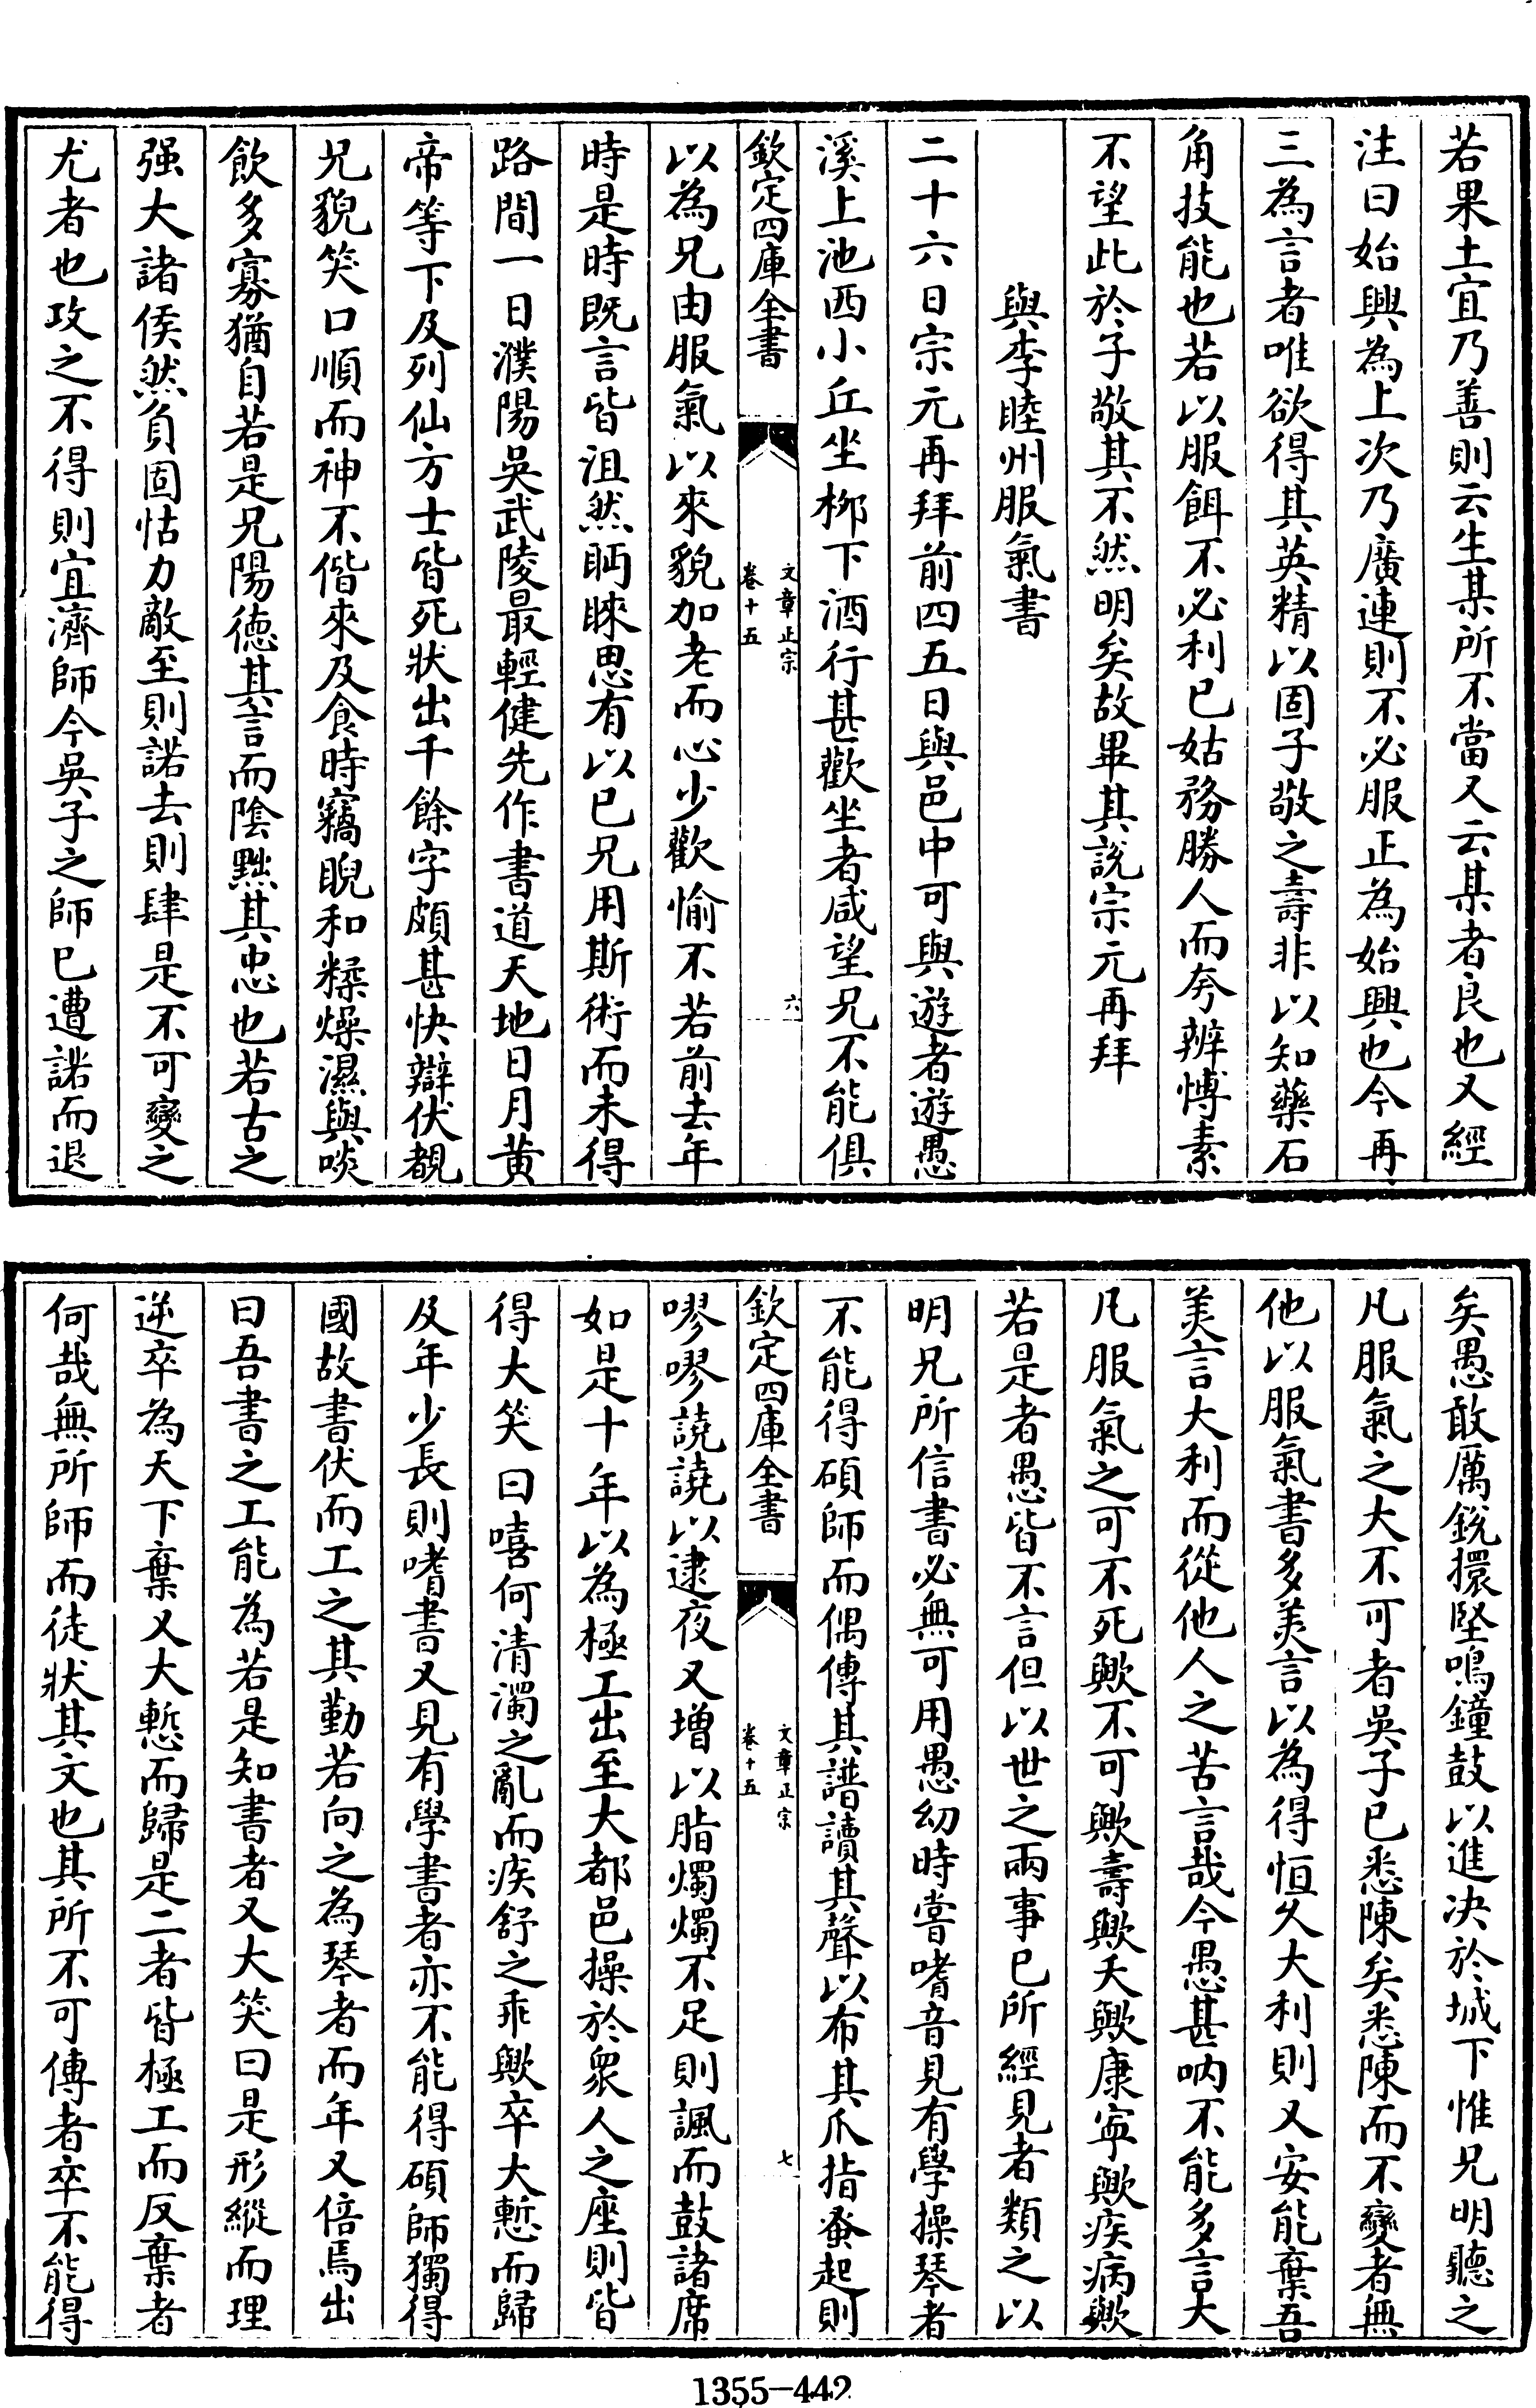 若果土宜乃善則云生某所不當又云某者良也又經
注曰始興為上次乃廣連則不必服正為始興也今再
三為言者唯欲得其英精以固子敬之壽非以知藥石
角技能也若以服餌不必利已姑務勝人而夸辨愽素
不望此於子敬其不然明矣故畢其說宗元再拜
與李睦州服氣書
二十六日宗元再拜前四五日與邑中可與遊者遊愚
溪上池西小丘坐栁下酒行甚歡坐者咸望兄不能俱
欽定四庫全書
文章正宗
卷十五
六
以為兄由服氣以來貌加老而心少歡愉不若前去年
時是時既言皆沮然眄睞思有以已兄用斯術而未得
路間一日濮陽吳武陵最輕健先作書道天地日月黄
帝等下及列仙方士皆死狀出千餘字頗甚快辯伏覩
兄貌笑口順而神不偕來及食時竊睨和糅燥濕與啖
飲多寡猶自若是兄陽德其言而陰黜其忠也若古之
强大諸侯然負固怙力敵至則諾去則肆是不可變之
尤者也攻之不得則宜濟師今吳子之師已遭諾而退
矣愚敢厲銳擐堅鳴鐘鼓以進决於城下惟兄明聽之
凡服氣之大不可者吳子已悉陳矣悉陳而不變者無
他以服氣書多美言以為得恒久大利則又安能棄吾
美言大利而從他人之苦言哉今愚甚吶不能多言大
凡服氣之可不死歟不可歟壽歟夭歟康寧歟疾病歟
若是者愚皆不言但以世之兩事已所經見者類之以
明兄所信書必無可用愚幼時嘗嗜音見有學操琴者
不能得碩師而偶傳其譜讀其聲以布其爪指蚤起則
欽定四庫全書
文章正宗
卷十五
七
嘐嘐譊譊以逮夜又增以脂燭燭不足則諷而鼓諸席
如是十年以為極工出至大都邑操於衆人之座則皆
得大笑曰嘻何清濁之亂而疾舒之乖歟卒大慙而歸
及年少長則嗜書又見有學書者亦不能得碩師獨得
國故書伏而工之其勤若向之為琴者而年又倍焉出
曰吾書之工能為若是知書者又大笑曰是形縱而理
逆卒為天下棄又大慙而歸是二者皆極工而反棄者
何哉無所師而徒狀其文也其所不可傳者卒不能得
1355-442